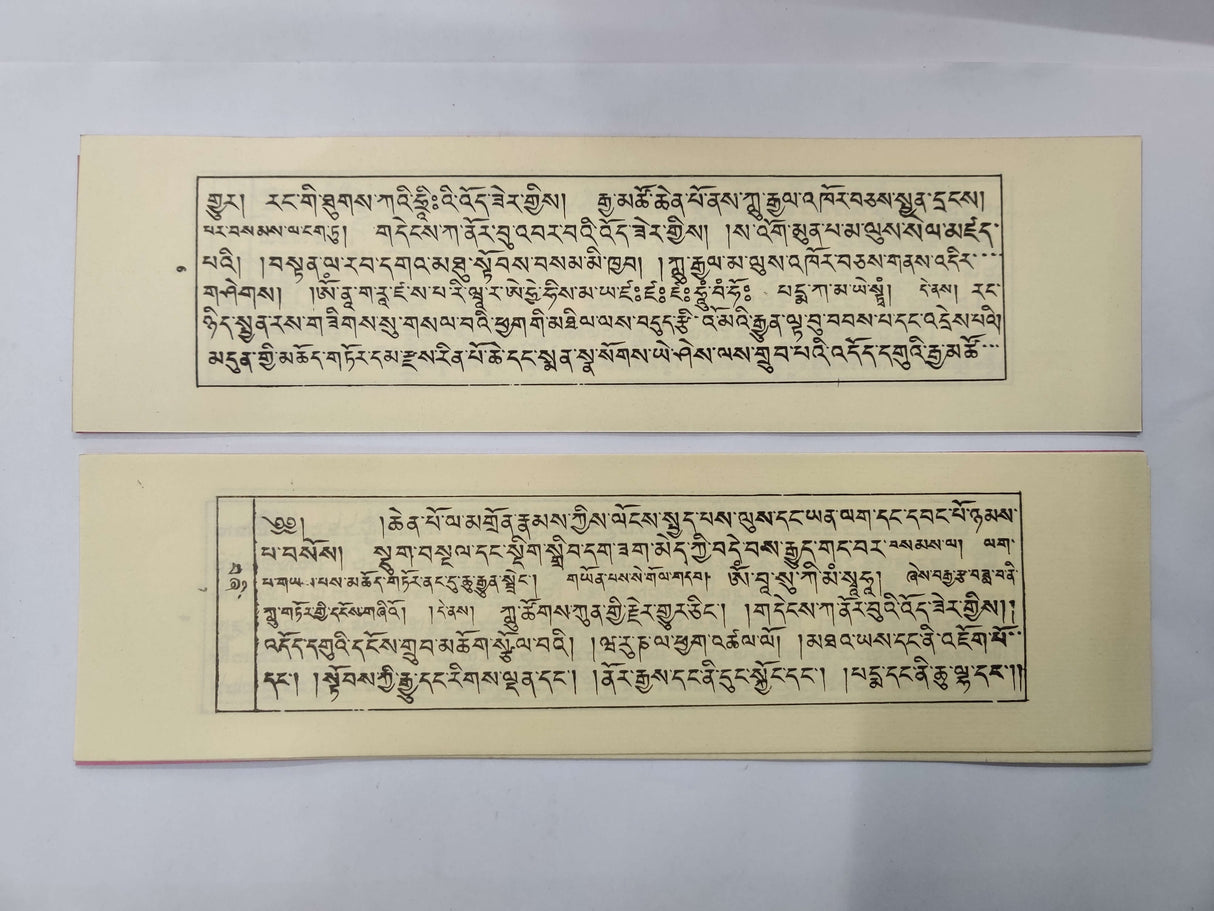 གྱུར། རང་གི་ཐུགས་ཀའི་ཧྲཱིཿའི་འོད་ཟེར་གྱིས། རྒྱ་མཚོ་ཆེན་པོ་ནས་ཀླུ་རྒྱལ་འཁོར་བཅས་སྤྱན་དྲངས།
པར་བསམས་ལ་ངག་ཏུ། གདེངས་ཀ་ནོར་བུ་འབར་བའི་འོད་ཟེར་གྱིས། །ས་འོག་མུན་པ་མ་ལུས་སེལ་མཛད་
པའི། །བསྟན་ལ་རབ་དགའ་མཐུ་སྟོབས་བསམ་མི་ཁྱབ། །ཀླུ་རྒྱལ་མ་ལུས་འཁོར་བཅས་གནས་འདིར་
གཤེགས། །ཨོཾ་ནཱ་ག་རཱ་ཛ་ས་པ་རི་ཝཱ་ར་ ཛཿཛཿཛཿཧཱུྃ་བཾ་ཧོཿ པདྨ་ཀ་མ་ཡེ་སྟྭཾ། དེ་ནས། རང་
ཉིད་སྤྱན་རས་གཟིགས་སུ་གསལ་བའི་ཕྱག་གི་མཐིལ་ལས་བདུད་རྩི་འོ་མའི་རྒྱུན་ལྟ་བུ་བབས་པ་དང་འདྲེས་པའི།
མདུན་གྱི་མཆོད་གཏོར་དམ་རྫས་རིན་པོ་ཆེ་དང་སྨན་སྣ་སོགས་ཡེ་ཤེས་ལས་གྲུབ་པའི་འདོད་དགུའི་རྒྱ་མཚོ་
༄༅། །ཆེན་པོ་ལ་མགྲོན་རྣམས་ཀྱིས་ལོངས་སྤྱད་པས་ལུས་དང་ཡན་ལག་དང་དབང་པོ་ཉམས་
པ་བསོས། སྡུག་བསྔལ་དང་སྡིག་སྒྲིབ་དག ཟག་མེད་ཀྱི་བདེ་བས་རྒྱུད་གང་བར་བསམས་ལ། ལག་
པ་གཡས་པས་མཆོད་གཏོར་ནང་དུ་ཆུ་རྒྱུན་སྦྲེང་། གཡོན་པས་སེ་གོལ་གདབ། ཨོཾ་ ཞེས་བརྒྱ་རྩ་བཟླ་བ་ནི་
ཀླུ་གཏོར་གྱི་དངོས་གཞིའོ། །དེ་ནས། ཀླུ་ཚོགས་ཀུན་གྱི་རྗེར་གྱུར་ཅིང་། །གདེངས་ཀ་ནོར་བུའི་འོད་ཟེར་གྱིས།།
འདོད་དགུའི་དངོས་གྲུབ་མཆོག་སྩོལ་བའི། །ཝ་རུ་ཎ་ལ་ཕྱག་འཚལ་ལོ། །མཐའ་ཡས་དང་ནི་འཇོག་པོ་
དང་། །སྟོབས་ཀྱི་རྒྱུ་དང་རིགས་ལྡན་དང་། །ནོར་རྒྱས་དང་ནི་དུང་སྐྱོང་དང་། །པདྨ་དང་ནི་ཆུ་ལྷ་དང་།།